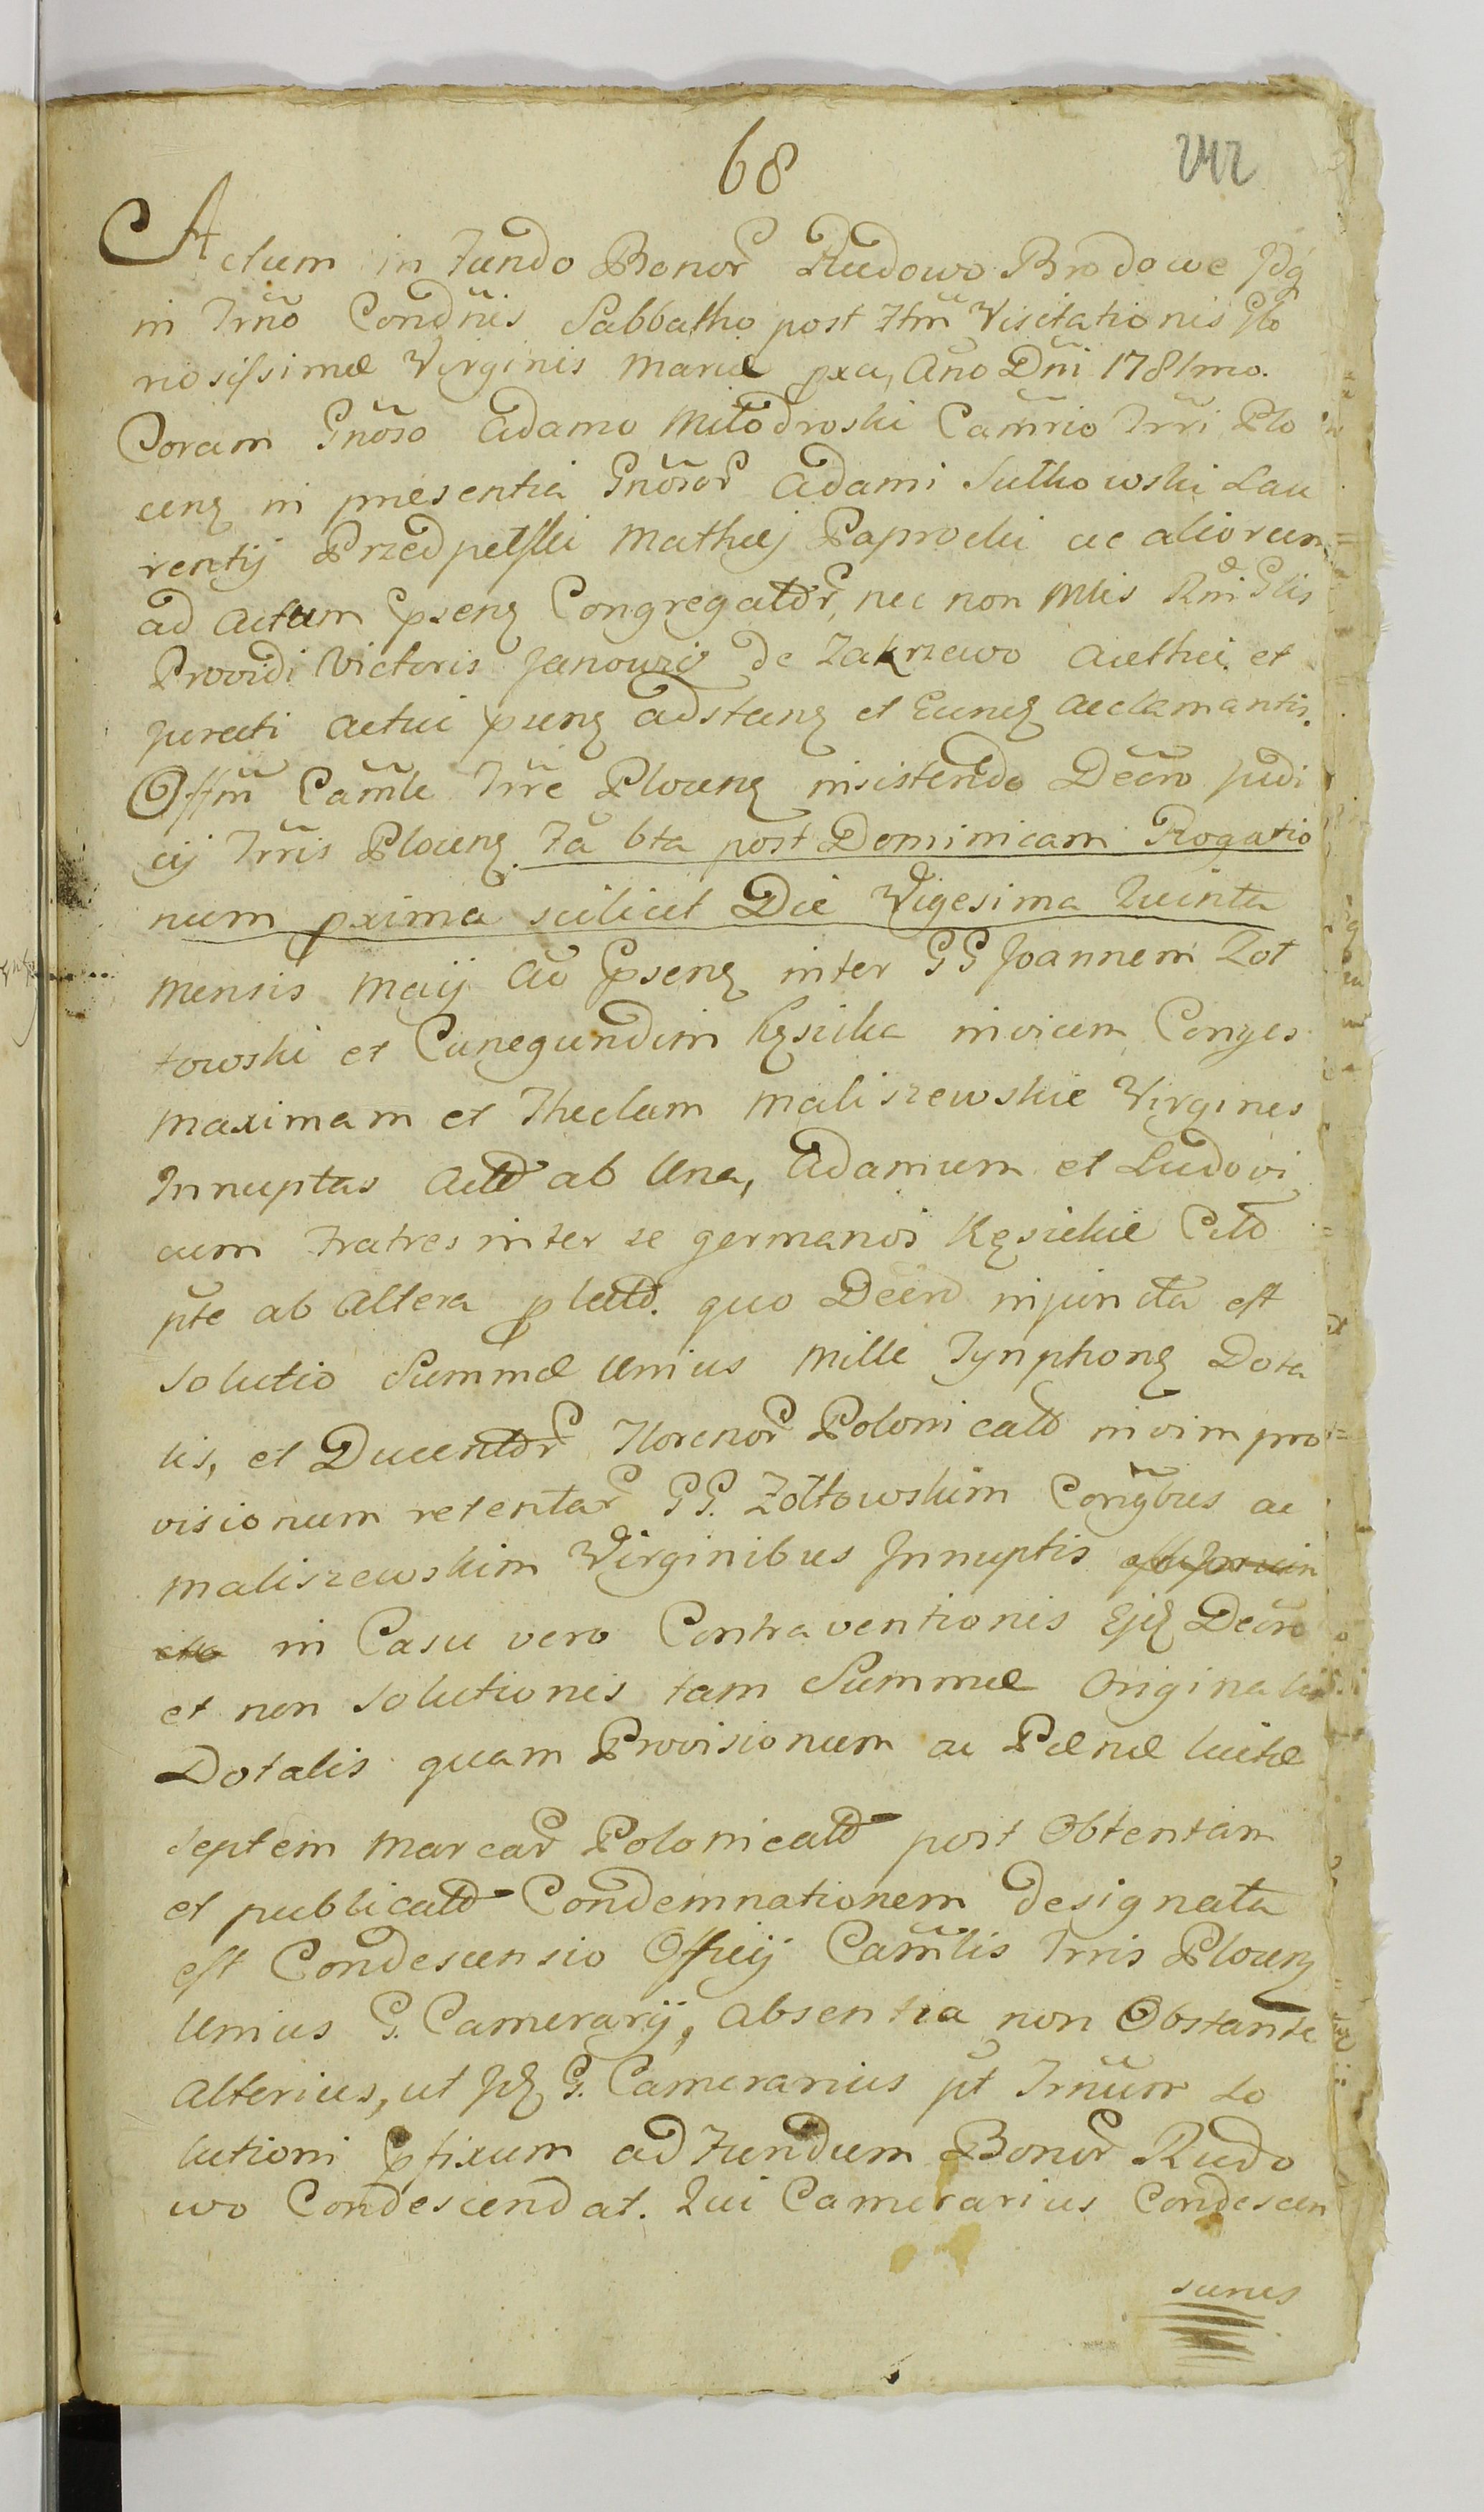 68
242
Actum in Fundo Bonor Rudowo Brodowe Jdq
in Trno Condnis Sabbatho post Ftm Visitationis Glo
riosissimæ Virginis Mariæ pxa, Ano Dni 1781mo.
Coram Gnoso Adamo Miłodroski Camrio Trri Plo
cenz in præsentia Gnosor Adami Sutkowski Lau
rentij Przedpełski Mathej Paprocki ac aliorum
ad Actum Psenz Congregator, nec non Mlis Rni Glis
Providi Victoris Janowzij de Zakrzewo Aulhui et
Jurati actui psenz adstanz et Eunz acclamantis.
Offm Camle Trre Plocenz insistendo Decro Judi
cij Trris Plocenz Fa 6ta post Dominicam Rogatio
num pxima scilicet Die Vigesima Quinta
mensis Maij Ao Psenz inter GG Joannem Zoł
towski et Cunegundim Kęsicka invicem Conges
Maximam et Theclam Maliszewskie Virgines
Innuptas Actd ab Una, Adamum et Ludovi
cum Fratres inter se germanos Kęsickie Citd
pte ab Altera platd. quo Decro injuncta est
Solutio Summæ Unius Mille Tynphonz Dota
lis, et Ducentor Florenor Polonicald in vim pro
visionum retentar GG. Zołtowskim Congbus ac
Maliszewskim Virginibus Innuptis
in Casu vero Contraventionis Ejz Decro
et non Solutionis tam Summæ Originalis
Dotalis quam Provisionum ac Pænæ luitæ
Septem Marcar Polonicald post Obtentam
et publicatd Condemnationem designata
est Condescensio Officij Camlis Trris Plocenz
Unius G. Camerarij, Absentia non Obstante
Alterius, ut Jdz G. Camerarius pt Trnum So
lutioni Pfixum ad Fundum Bonor Rudo
wo Condescendat. Qui Camerarius Condescen
suris